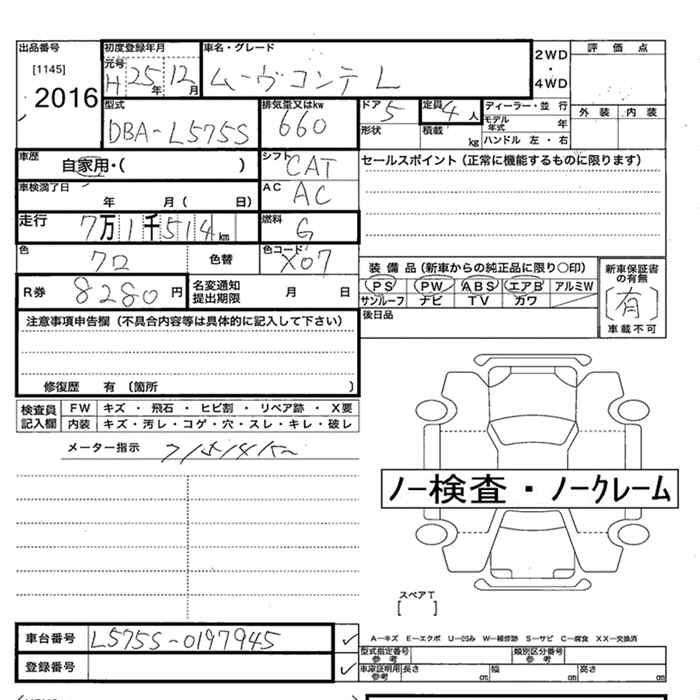 出品番号 初度登録年月 車名・グレード
[1145] 元号 H 25年 12月 ムーヴコンテ L 2WD・4WD 評価点
2016
型式 排気量又はkw ドア 5 定員 4人 ディーラー・並 行 外装 内装
DBA-L575S 660 形状 積載 kg モデル年式 年
ハンドル 左・右
車歴 自家用・( ) シフト CAT セールスポイント(正常に機能するものに限ります)
車検満了日 年 月( 日) AC AC
走行 7万1千514km 燃料 G
色 クロ 色替 色コード X07
装備品(新車からの純正品に限り○印) 新車保証書の有無
R券 8280円 名変通知提出期限 月 日 PS PW ABS エアB アルミW [有]
サンルーフ ナビ TV カワ 車載不可
注意事項申告欄(不具合内容等は具体的に記入して下さい) 後日品
修復歴 有 〔箇所 〕
検査員記入欄 FW キズ・飛石・ヒビ割・リペア跡・X要
内装 キズ・汚レ・コゲ・穴・スレ・キレ・破レ
メーター指示
ノー検査・ノークレーム
スペアT
[ ]
車台番号 L575S-0197945 ✓ A―キズ E―エクボ U―凹み W―補修跡 S―サビ C―腐食 XX―交換済
型式指定番号 参考 類別区分番号 参考
登録番号 ✓ 車庫証明用 参考 長さ cm 幅 cm 高さ cm